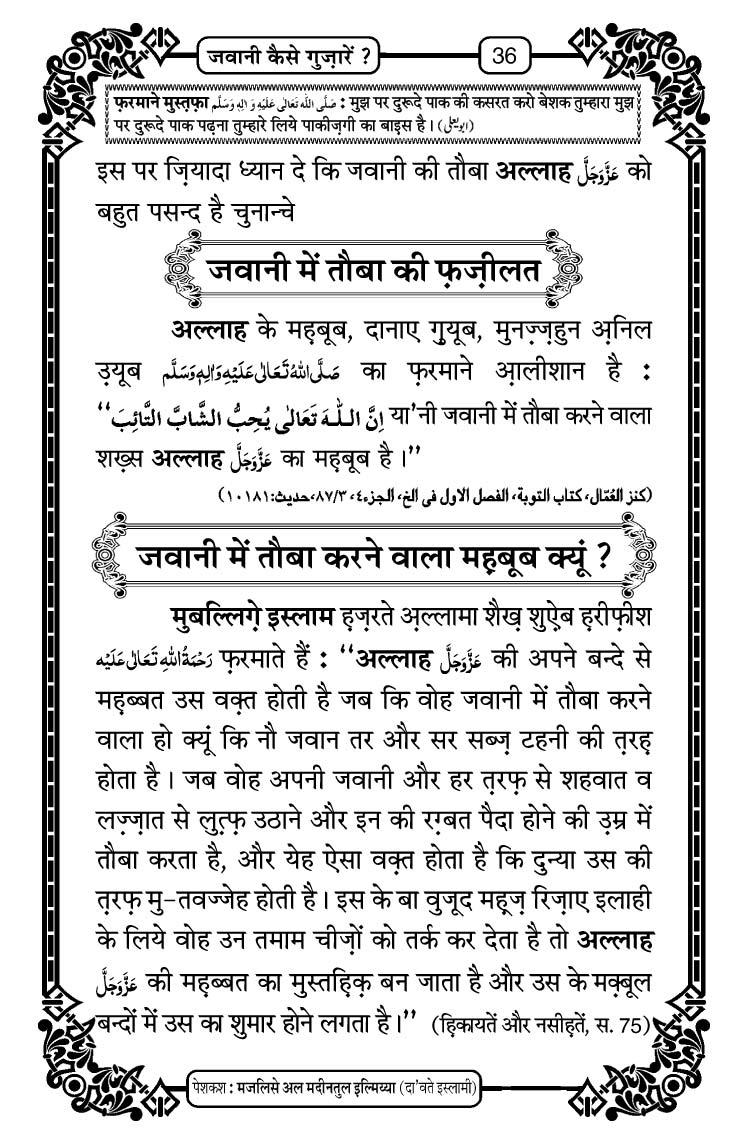 जवानी कैसे गुज़ारें ?
36
फ़रमाने मुस्त़फ़ा صَلَّى اللهُ تَعَالٰى عَلَيْهِ وَاٰلِهٖ وَسَلَّم : मुझ पर दुरूदे पाक की कसरत करो बेशक तुम्हारा मुझ
पर दुरूदे पाक पढ़ना तुम्हारे लिये पाकीज़गी का बाइस है । (ابو یعلی)
इस पर ज़ियादा ध्यान दे कि जवानी की तौबा अल्लाह عَزَّوَجَلَّ को
बहुत पसन्द है चुनान्चे
जवानी में तौबा की फ़ज़ीलत
अल्लाह के मह़बूब, दानाए ग़ुयूब, मुनज़्ज़हुन अ़निल
उ़यूब صَلَّى اللهُ تَعَالٰى عَلَيْهِ وَاٰلِهٖ وَسَلَّم का फ़रमाने आ़लीशान है :
‘‘ اِنَّ اللّٰهَ تَعَالٰى يُحِبُّ الشَّابَّ التَّائِبَ या’नी जवानी में तौबा करने वाला
शख़्स अल्लाह عَزَّوَجَلَّ का मह़बूब है ।’’
(كنز العُمّال، كتاب التوبة، الفصل الاول فى الخ، الجزء٤، ٨٧/٣، حديث:١٠١٨١)
जवानी में तौबा करने वाला मह़बूब क्यूं ?
मुबल्लिग़े इस्लाम ह़ज़रते अ़ल्लामा शैख़ शुऐ़ब ह़रीफ़ीश
رَحْمَةُ اللهِ تَعَالٰى عَلَيْه फ़रमाते हैं : ‘‘अल्लाह عَزَّوَجَلَّ की अपने बन्दे से
मह़ब्बत उस वक़्त होती है जब कि वोह जवानी में तौबा करने
वाला हो क्यूं कि नौ जवान तर और सर सब्ज़ टहनी की त़रह़
होता है । जब वोह अपनी जवानी और हर त़रफ़ से शहवात व
लज़्ज़ात से लुत्फ़ उठाने और इन की रग़्बत पैदा होने की उ़म्र में
तौबा करता है, और येह ऐसा वक़्त होता है कि दुन्या उस की
त़रफ़ मु-तवज्जेह होती है । इस के बा वुजूद मह़ज़ रिज़ाए इलाही
के लिये वोह उन तमाम चीज़ों को तर्क कर देता है तो अल्लाह
عَزَّوَجَلَّ की मह़ब्बत का मुस्तह़िक़ बन जाता है और उस के मक़्बूल
बन्दों में उस का शुमार होने लगता है ।’’ (ह़िकायतें और नसीह़तें, स. 75)
पेशकश : मजलिसे अल मदीनतुल इल्मिय्या (दा’वते इस्लामी)